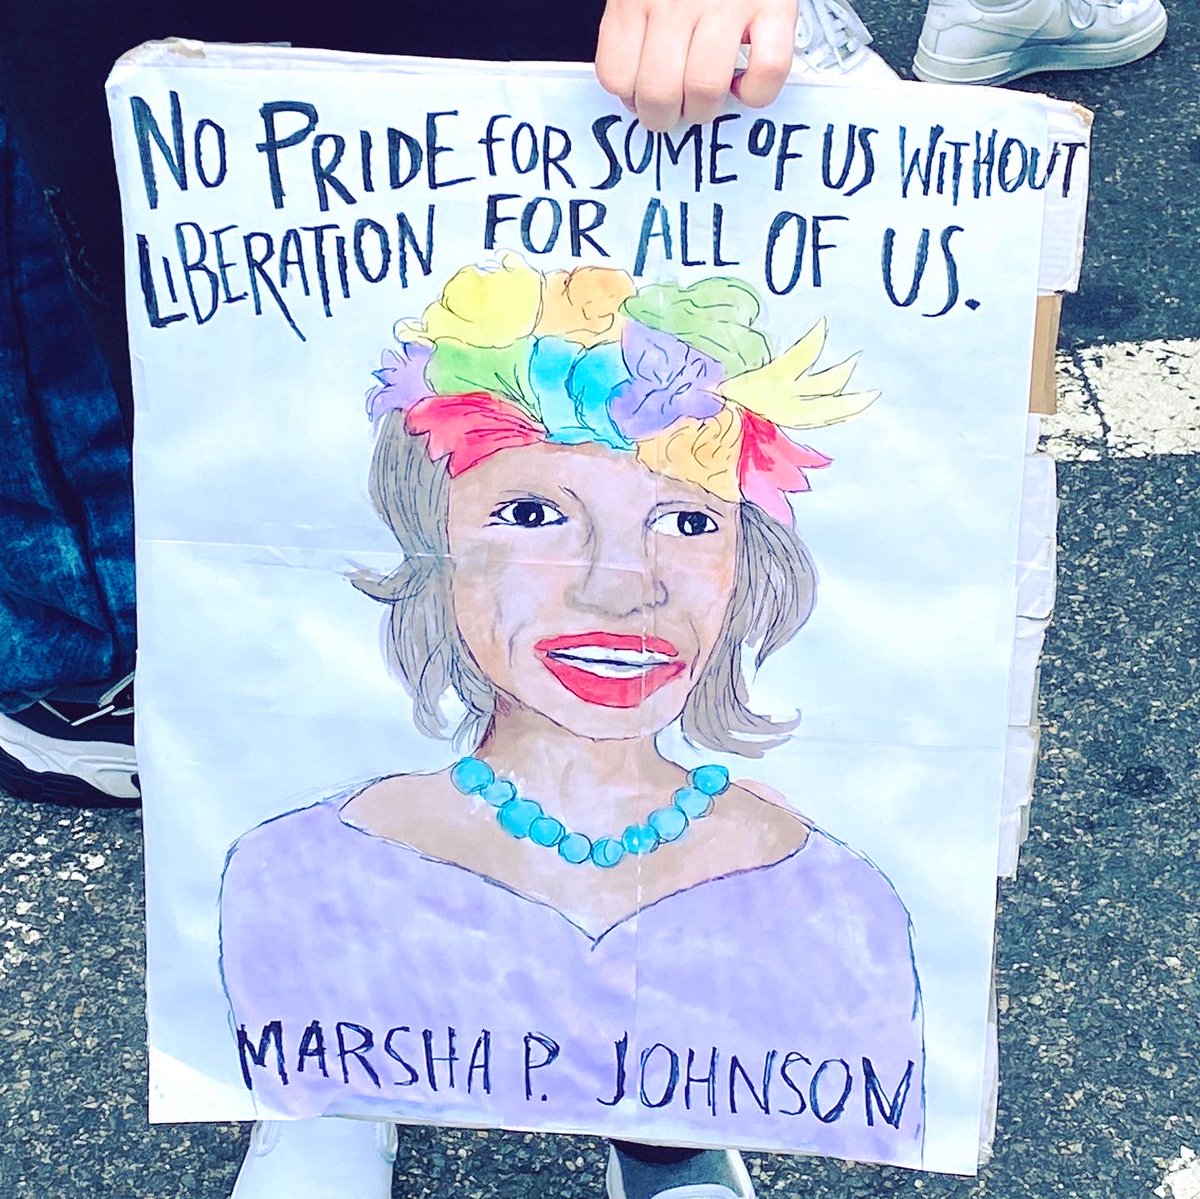 NO PRIDE FOR SOME OF US WITHOUT
LIBERATION FOR ALL OF US.
MARSHA P. JOHNSON